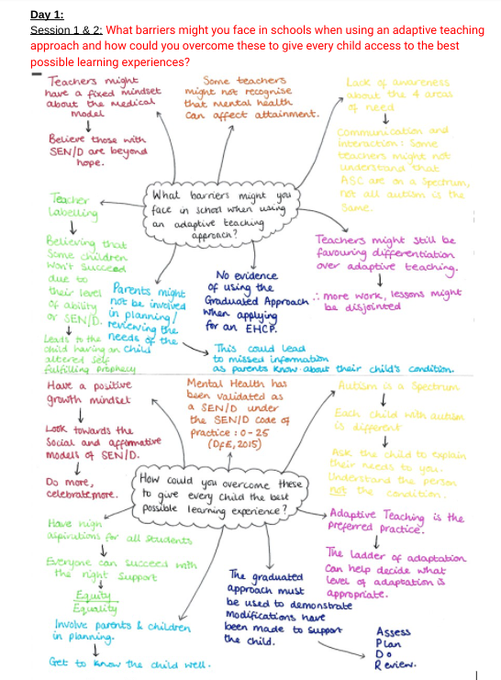 Day 1:
Session 1 & 2: What barriers might you face in schools when using an adaptive teaching
approach and how could you overcome these to give every child access to the best
possible learning experiences?
Teachers might
have a fixed mindset
about the medical
model
Believe those with
SEN/D are beyond
hope.
Some teachers
might not recognise
that mental health
can affect attainment.
Lack of awareness
about the 4 areas
of need
Communication and
interaction: Some
teachers might not
understand that
ASC are on a spectrum,
not all autism is the
same.
What barriers might you
face in school when using
an adaptive teaching
approach?
Teacher
Labelling
Believing that
some children
won't succeed
due to
their level
of ability
or SEN/D.
Leads to the
child having an
altered self
fulfilling prophecy
Parents might
not be involved
in planning/
reviewing the
needs of the
child
This could lead
to missed information
as parents know about their child's condition.
No evidence
of using the
Graduated Approach
when applying
for an EHCP.
Teachers might still be
favouring differentiation
over adaptive teaching.
∴ more work, lessons might
be disjointed
Have a positive
growth mindset
Look towards the
Social and affirmative
models of SEN/D.
Do more,
celebrate more.
Mental Health has
been validated as
a SEN/D under
the SEN/D code of
practice: 0-25
(DfE, 2015)
Autism is a Spectrum
Each child with autism
is different
Ask the child to explain
their needs to you.
Understand the person
not the condition.
How could you overcome these
to give every child the best
possible learning experience?
Have high
aspirations for all students
Everyone can succeed with
the right support
Equity
Equality
Involve parents & children
in planning.
Get to know the child well.
The graduated
approach must
be used to demonstrate
modifications have
been made to support
the child.
Assess
Plan
Do
Review.
Adaptive Teaching is the
preferred practice.
The ladder of adaptation
can help decide what
level of adaptation is
appropriate.